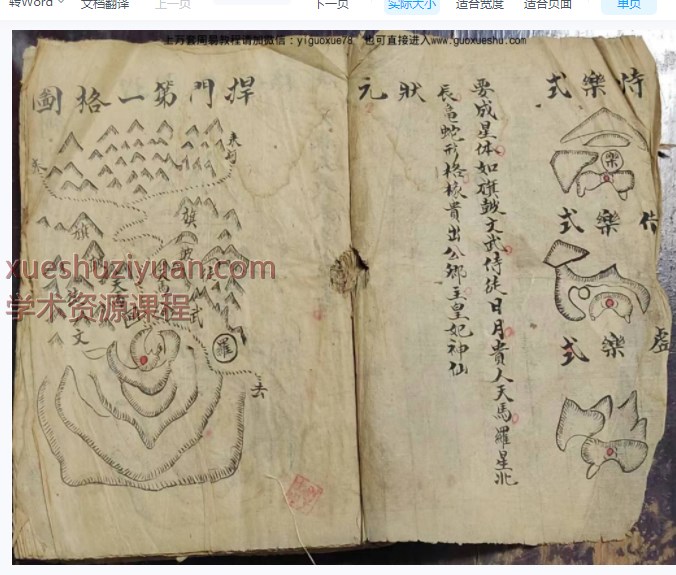 转Word
文档翻译
上一页
下一页
实际大小
适合宽度
适合页面
单页
上万套周易教程请加微信：yiguoxue78 也可直接进入www.guoxueshu.com
恃樂式
樂
借樂式
虚樂式
要成星体如旗鼓文武侍徒日月貴人天馬羅星北
辰龟蛇形格様貴出公鄉主皇妃神仙
狀元
捍門第一格圖
旗
旗
武
文
羅
去
xueshuziyuan.com
学术资源课程